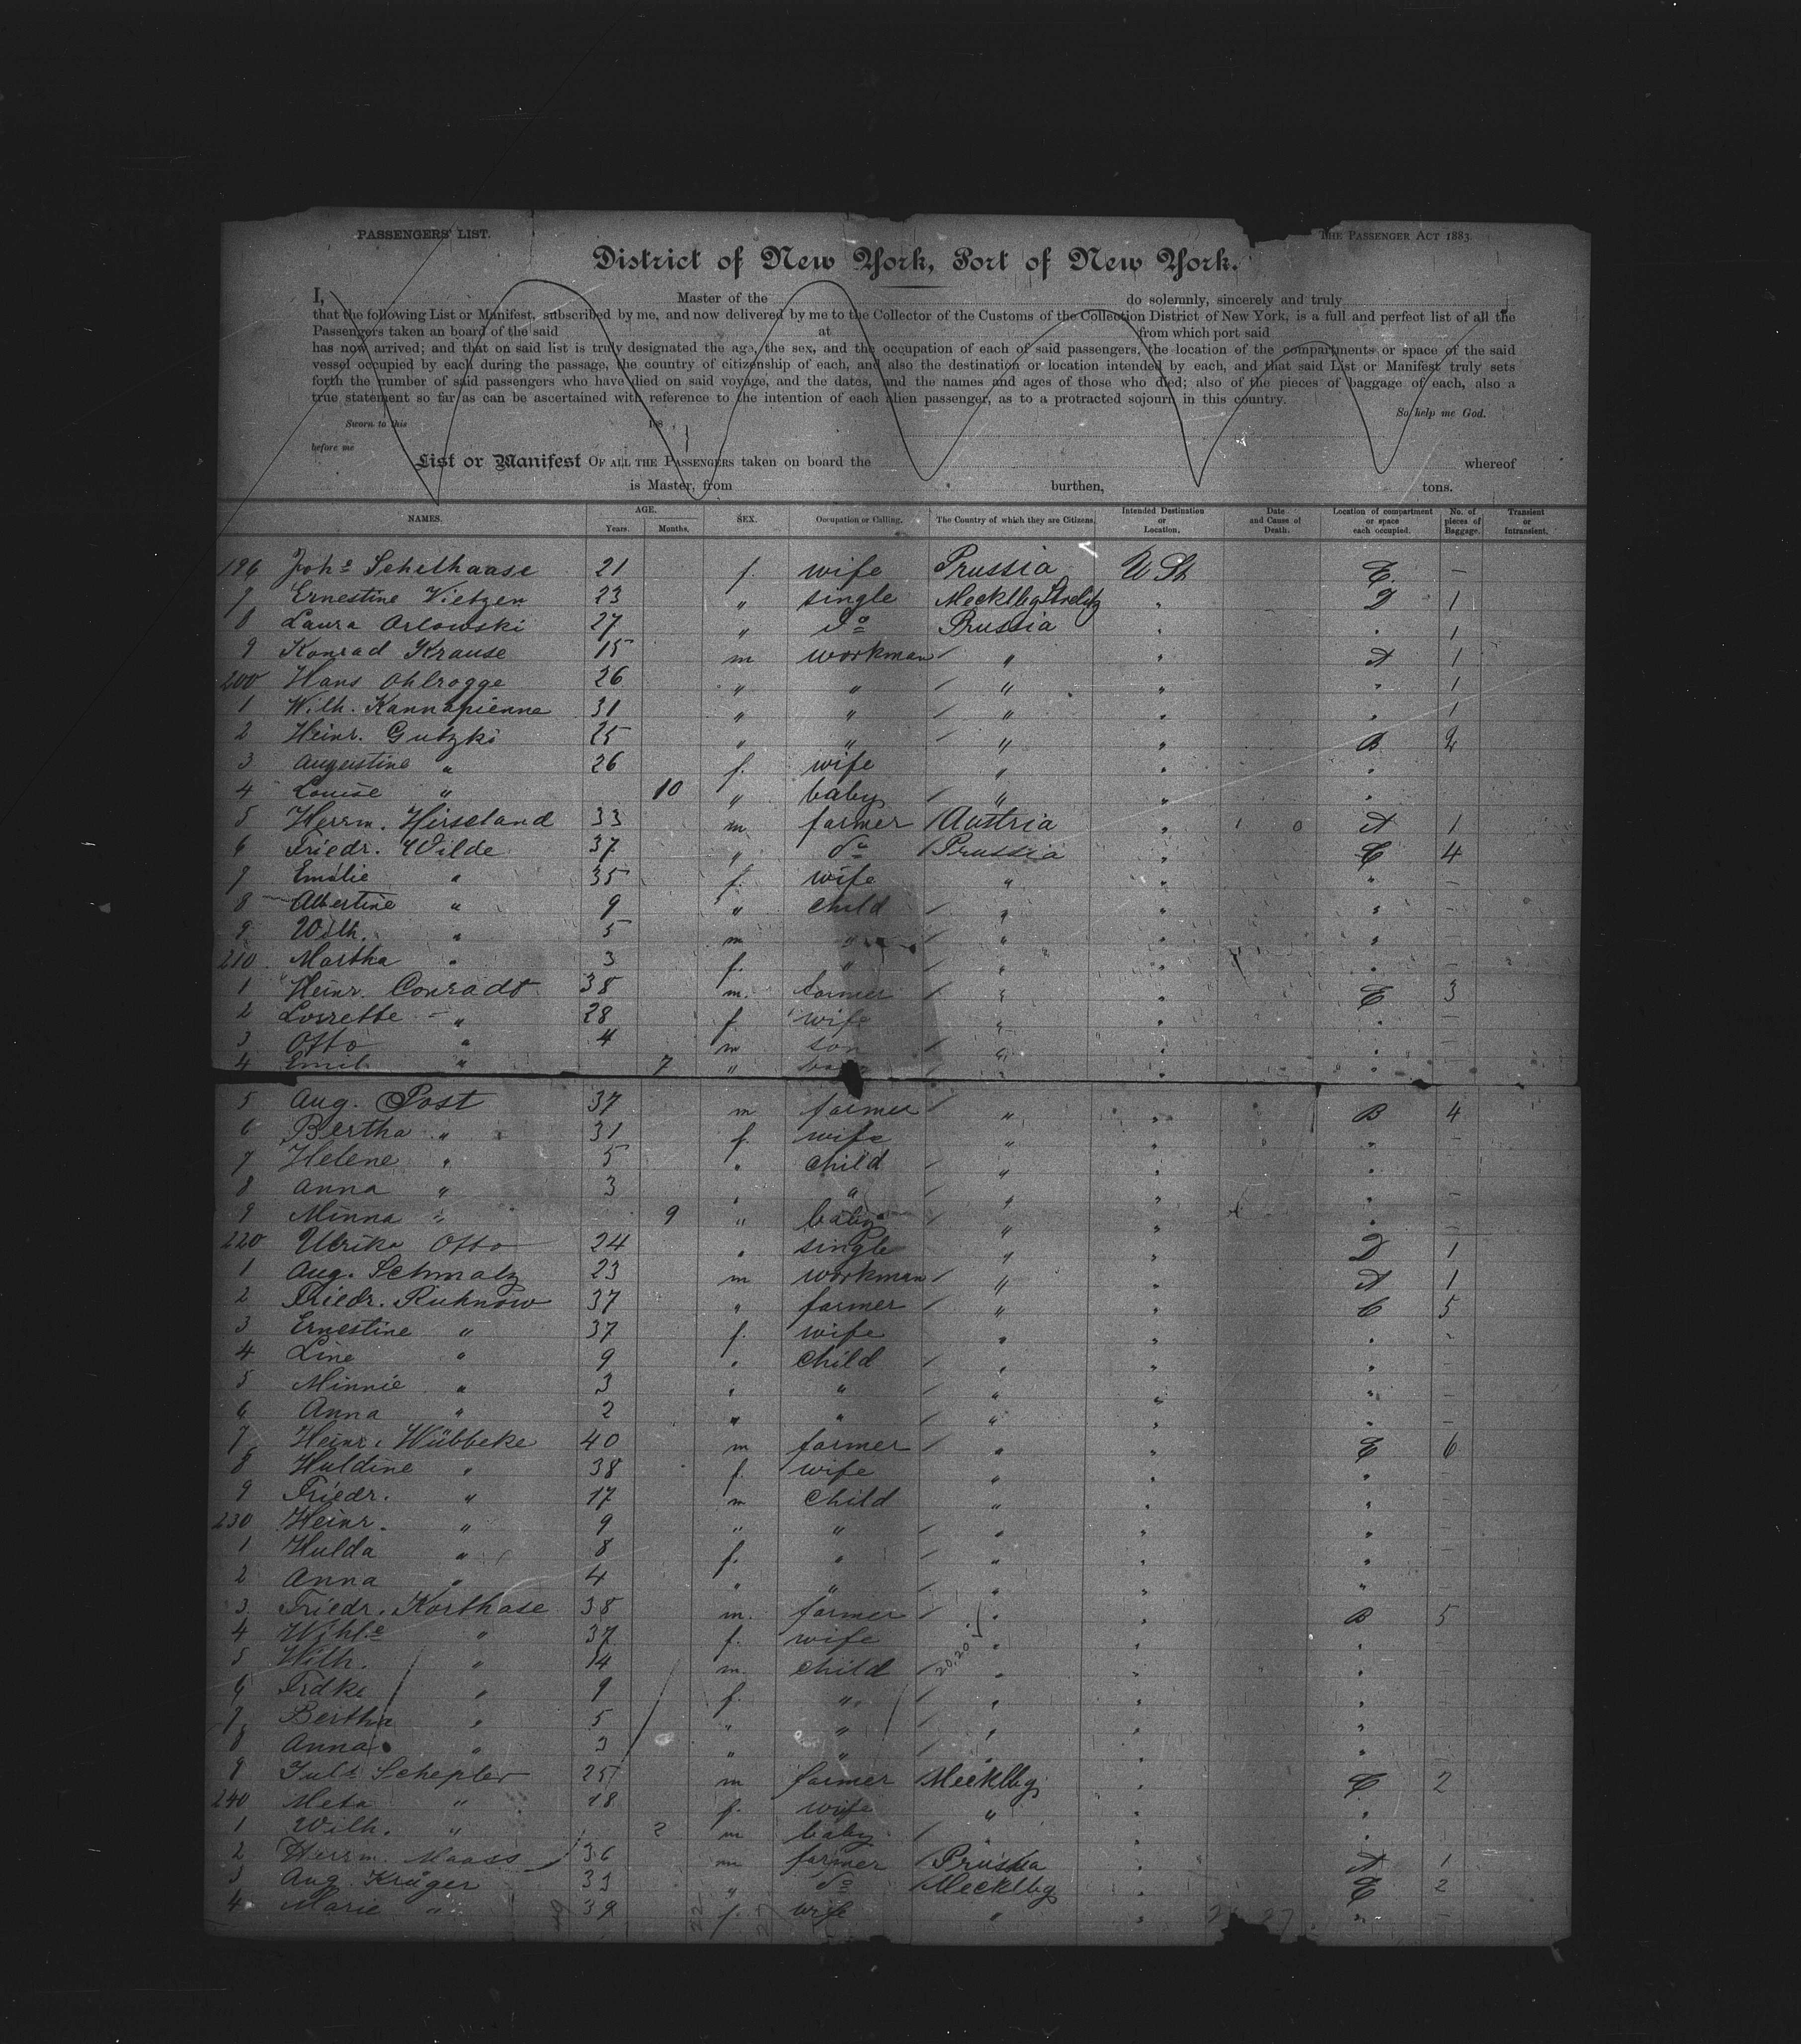 PASSENGERS' LIST.
THE PASSENGER ACT 1883.
District of New York, Port of New York.
I, Master of the do solemnly, sincerely and truly
that the following List or Manifest, subscribed by me, and now delivered by me to the Collector of the Customs of the Collection District of New York, is a full and perfect list of all the
Passengers taken an board of the said at from which port said
has now arrived; and that on said list is truly designated the age, the sex, and the occupation of each of said passengers, the location of the compartments or space of the said
vessel occupied by each during the passage, the country of citizenship of each, and also the destination or location intended by each, and that said List or Manifest truly sets
forth the number of said passengers who have died on said voyage, and the dates, and the names and ages of those who died; also of the pieces of baggage of each, also a
true statement so far as can be ascertained with reference to the intention of each alien passenger, as to a protracted sojourn in this country.
So help me God.
Sworn to this 188
before me
List or Manifest OF ALL THE PASSENGERS taken on board the whereof
is Master, from burthen, tons.
NAMES. AGE. Years. Months. SEX. Occupation or Calling. The Country of which they are Citizens. Intended Destination or Location. Date and Cause of Death. Location of compartment or space each occupied. No. of pieces of Baggage. Transient or Intransient.
196 Johe Schelhaase 21 f. wife Prussia U St E. —
7 Ernestine Vietzen 23 " single Mecklbg Strelitz " D 1
8 Laura Orlowski 27 " do Prussia " " 1
9 Konrad Krause 15 m workman " " A 1
200 Hans Ohlrogge 26 " " " " " 1
1 Wilh. Kannapienne 31 " " " " " 1
2 Heinr. Gutzki 25 " " " " B 2
3 Augustine " 26 f. wife " " "
4 Louise " 10 " baby " " "
5 Herrm. Hirseland 33 m farmer Austria " A 1
6 Friedr. Wilde 37 " do Prussia " C 4
7 Emilie " 35 f. wife " " " —
8 Albertine " 9 " child " " " —
9 Wilh. " 5 m " " " " —
210 Martha " 3 f. " " " " —
1 Heinr. Conradt 38 m. farmer " " E 3
2 Lorrette " 28 f wife " " " —
3 Otto " 4 m son " " " —
4 Emil " 7 " " " "
5 Aug. Post 37 m farmer " " B 4
6 Bertha " 31 f. wife " " " —
7 Helene " 5 " child " " "
8 Anna " 3 " " " " " —
9 Minna " 9 " baby " " " —
220 Ulrike Otto 24 " single " " D 1
1 Aug. Schmalz 23 m workman " " A 1
2 Friedr. Ruhnow 37 " farmer " " C 5
3 Ernestine " 37 f. wife " " " —
4 Line " 9 " child " " " —
5 Minnie " 3 " " " " " —
6 Anna " 2 " " " " " —
7 Heinr. Wübbeke 40 m farmer " " E 6
8 Huldine " 38 f. wife " " " —
9 Friedr. " 17 m child " " " —
230 Heinr. " 9 " " " " " —
1 Hulda " 8 f. " " " " —
2 Anna " 4 " " " " " —
3 Friedr. Korthase 38 m. farmer " " B 5
4 Wihle " 37 f. wife " " "
5 Wilh. " 14 m. child 20,20 " " "
6 Frdke " 9 f. " " " " —
7 Bertha " 5 " " " " "
8 Anna " 3 " " " " " —
9 Juls Schepler 25 m farmer Mecklbg " C 2
240 Meta " 18 f. wife " " "
1 Wilh. " 2 m baby " " "
2 Herrm. Maass 36 m farmer Prussia " A 1
3 Aug. Krüger 33 " do Mecklbg " E 2
4 Marie " 39 f. wife " " " —